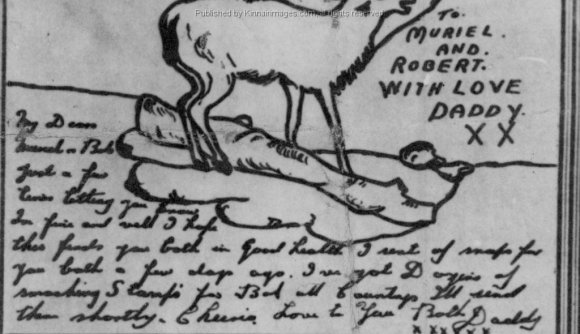 Published by Kinnaimages.com, all rights reserved.
TO.
MURIEL.
AND.
ROBERT.
WITH LOVE
DADDY.
X X
My Dear
Muriel & Bob
Just a few
lines letting you know
Im fine and well I hope
this finds you both in Good health I sent of
you both a few days ago. I've got Dozens of
smashing Stamps for Bob all Countrys Ill send
them shortly. Cheerio Love to You Both Daddy
XXXXXX